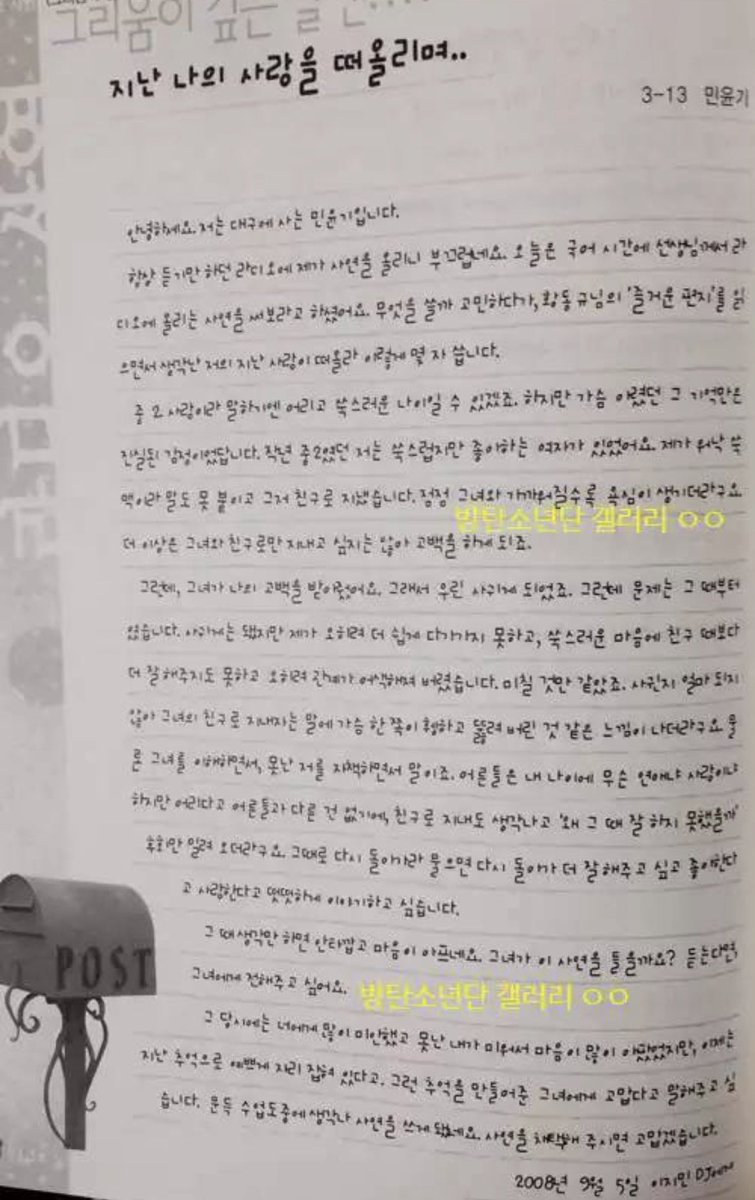 그리움이 깊은
지난 나의 사랑을 떠올리며..
3-13 민윤기
안녕하세요. 저는 대구에 사는 민윤기입니다.
항상 듣기만 하던 라디오에 제가 사연을 올리니 부끄럽네요. 오늘은 국어 시간에 선생님께서 라
디오에 올리는 사연을 써보라고 하셨어요. 무엇을 쓸까 고민하다가, 황동규님의 '즐거운 편지'를 읽
으면서 생각난 저의 지난 사랑이 떠올라 이렇게 몇 자 씁니다.
중 2 사랑이라 말하기엔 어리고 쑥스러운 나이일 수 있겠죠. 하지만 가슴 아렸던 그 기억만은
진실된 감정이었답니다. 작년 중2였던 저는 쑥스럽지만 좋아하는 여자가 있었어요. 제가 워낙 쑥
맥이라 말도 못 붙이고 그저 친구로 지냈습니다. 점점 그녀와 가까워질수록 욕심이 생기더라구요.
방탄소년단 갤러리 ㅇㅇ
더 이상은 그녀와 친구로만 지내고 싶지는 않아 고백을 하게 되죠.
그런데, 그녀가 나의 고백을 받아줬어요. 그래서 우린 사귀게 되었죠. 그런데 문제는 그 때부터
였습니다. 사귀게는 됐지만 제가 오히려 더 쉽게 다가가지 못하고, 쑥스러운 마음에 친구 때보다
더 잘해주지도 못하고 오히려 관계가 어색해져 버렸습니다. 미칠 것만 같았죠. 사귄지 얼마 되지
않아 그녀의 친구로 지내자는 말에 가슴 한 쪽이 휑하고 뚫려 버린 것 같은 느낌이 나더라구요 물
론 그녀를 이해하면서, 못난 저를 자책하면서 말이죠. 어른들은 내 나이에 무슨 연애냐 사랑이냐
하지만 어리다고 어른들과 다른 건 없기에, 친구로 지내도 생각나고 '왜 그 때 잘 하지 못했을까'
후회만 밀려 오더라구요. 그때로 다시 돌아가라 물으면 다시 돌아가 더 잘해주고 싶고 좋아한다
고 사랑한다고 떳떳하게 이야기하고 싶습니다.
그 때 생각만 하면 안타깝고 마음이 아프네요. 그녀가 이 사연을 들을까요? 듣는다면,
그녀에게 전해주고 싶어요.
방탄소년단 갤러리 ㅇㅇ
그 당시에는 너에게 많이 미안했고 못난 내가 미워서 마음이 많이 아팠었지만, 이제는
지난 추억으로 예쁘게 자리 잡혀 있다고. 그런 추억을 만들어준 그녀에게 고맙다고 말해주고 싶
습니다. 문득 수업도중에 생각나 사연을 쓰게 됐네요. 사연을 채택해 주시면 고맙겠습니다.
2008년 9월 5일 이지민 DJ에게
POST